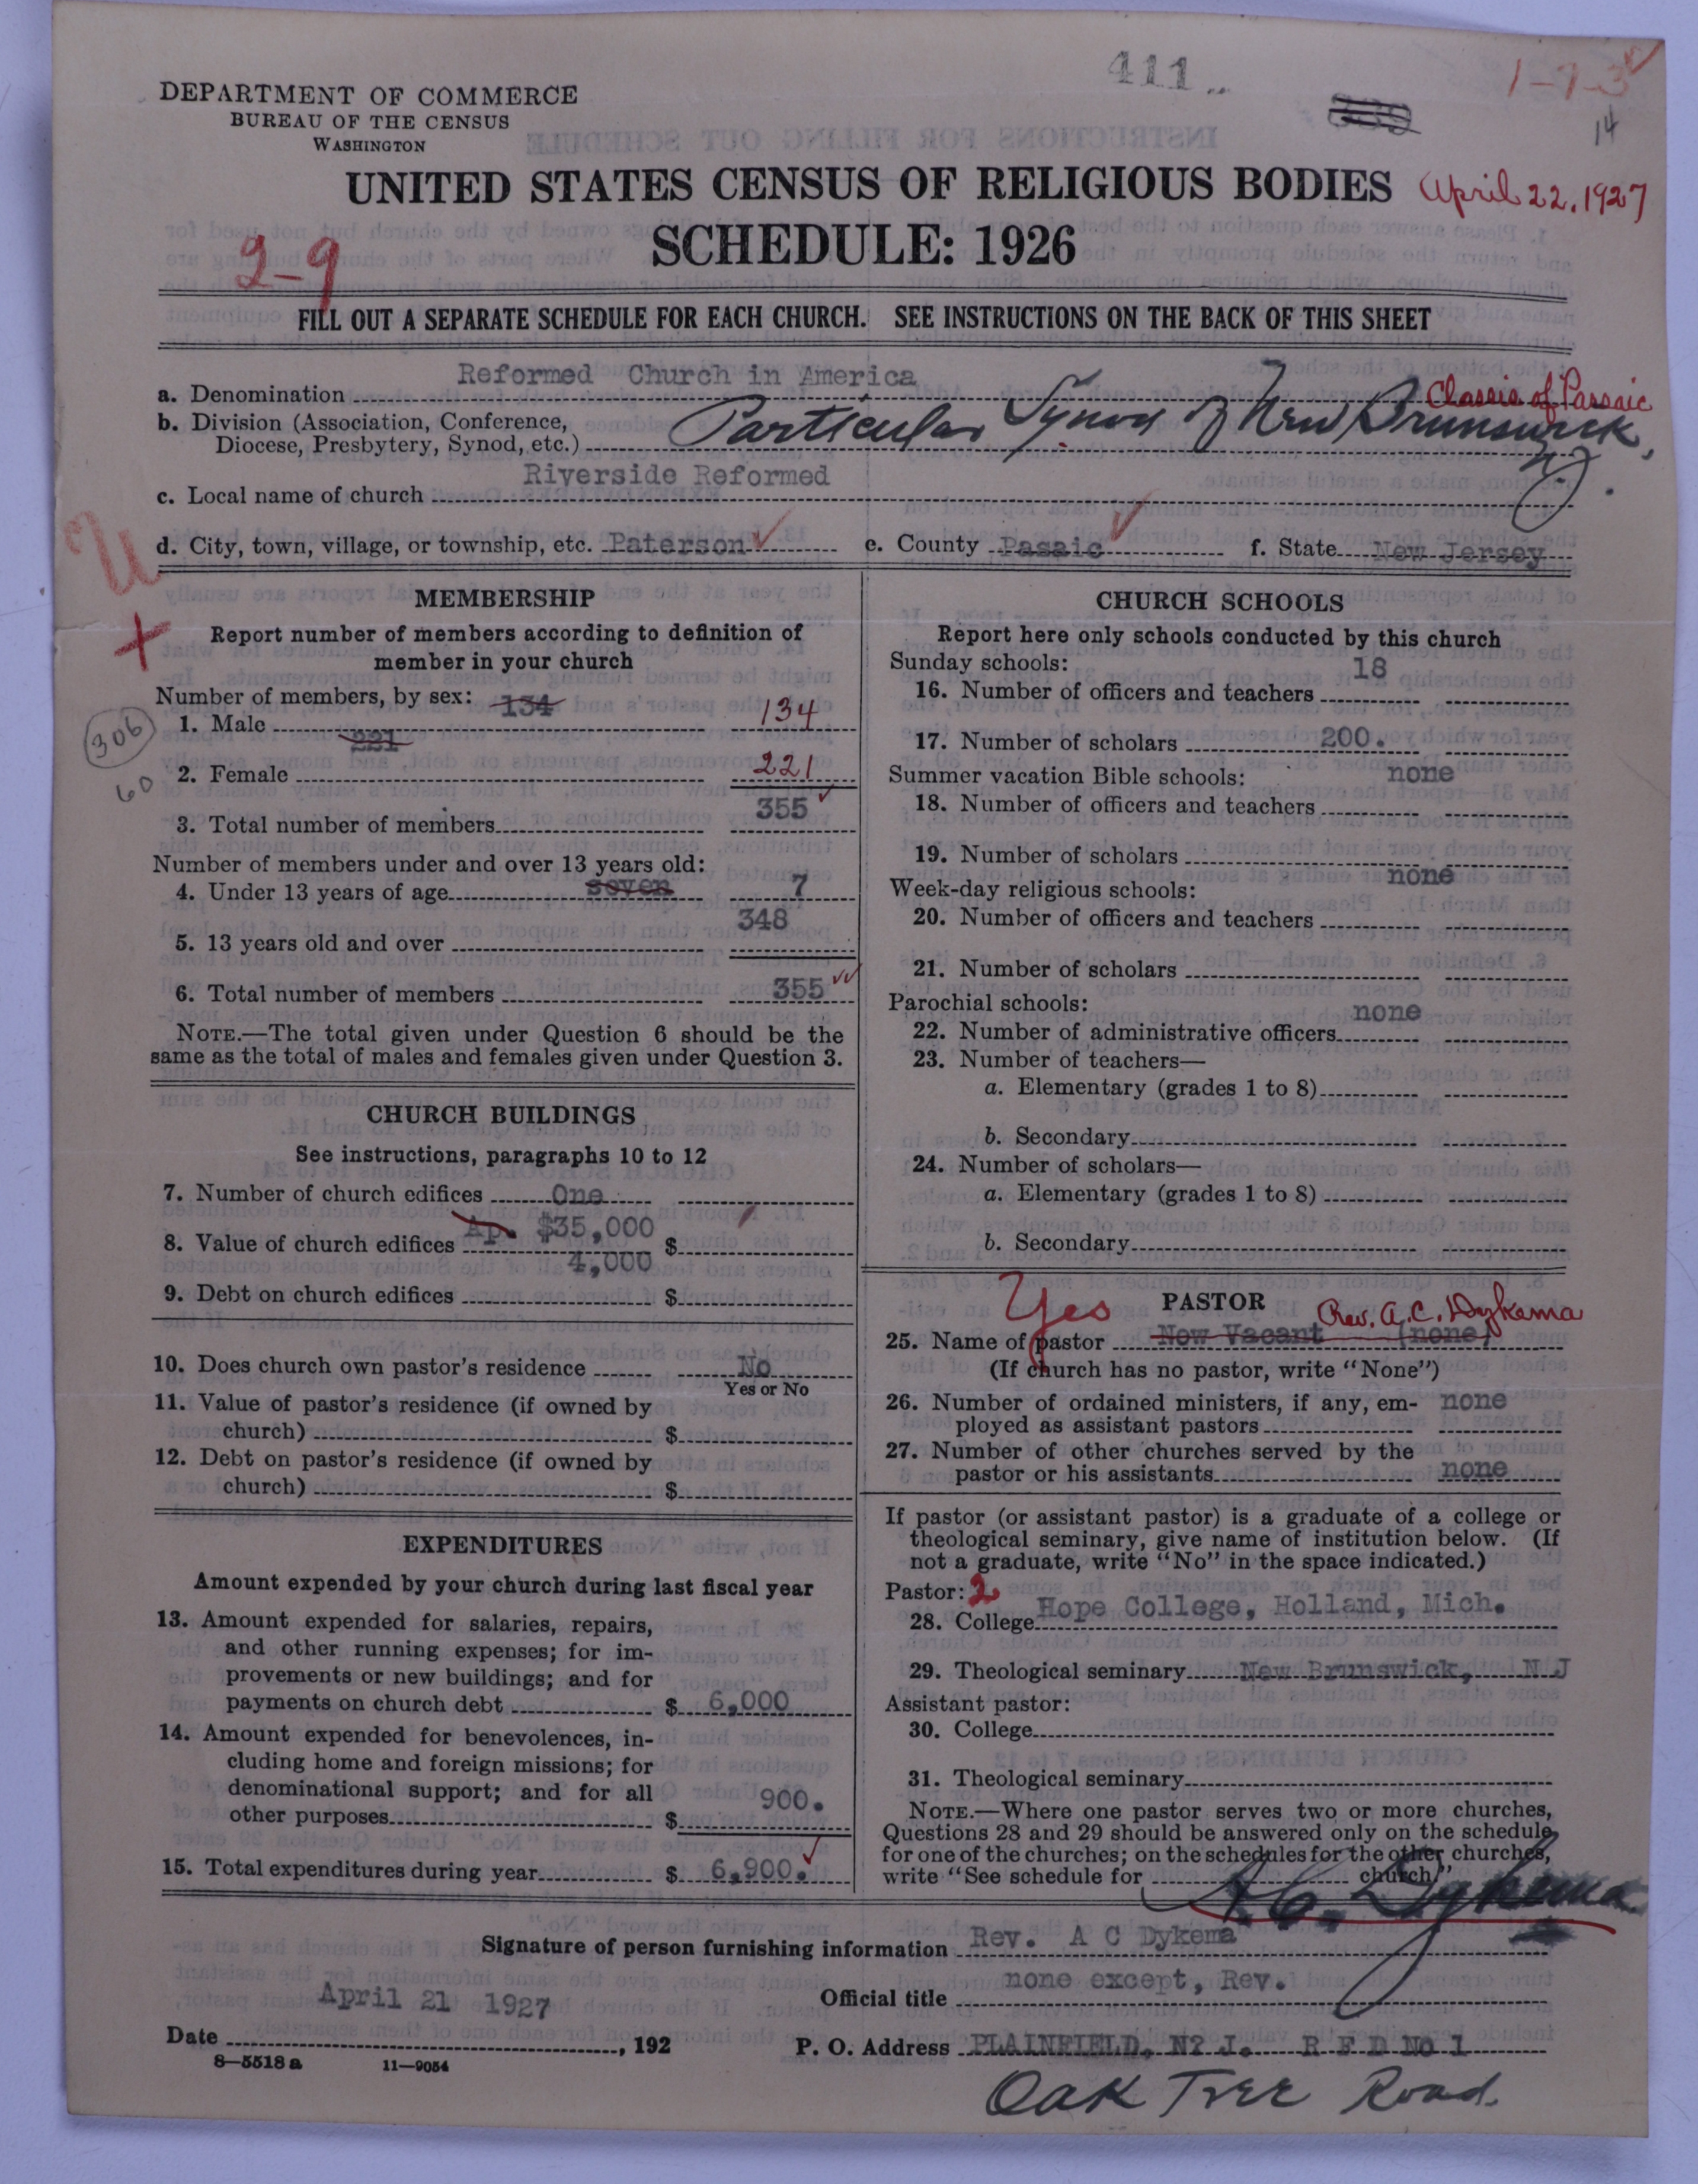 411
1-7-3
14
DEPARTMENT OF COMMERCE
BUREAU OF THE CENSUS
WASHINGTON
UNITED STATES CENSUS OF RELIGIOUS BODIES April 22, 1927
SCHEDULE: 1926
2-9
FILL OUT A SEPARATE SCHEDULE FOR EACH CHURCH. SEE INSTRUCTIONS ON THE BACK OF THIS SHEET
a. Denomination Reformed Church in America Classis of Passaic
b. Division (Association, Conference,
Diocese, Presbytery, Synod, etc.) Particular Synod of New Brunswick, N.J.
c. Local name of church Riverside Reformed
d. City, town, village, or township, etc. Paterson e. County Passaic f. State New Jersey
U
MEMBERSHIP
Report number of members according to definition of
member in your church
Number of members, by sex: 134
1. Male 134
306
221
2. Female 221
60
3. Total number of members 355
Number of members under and over 13 years old:
4. Under 13 years of age seven 7
5. 13 years old and over 348
6. Total number of members 355
NOTE.—The total given under Question 6 should be the
same as the total of males and females given under Question 3.
CHURCH BUILDINGS
See instructions, paragraphs 10 to 12
7. Number of church edifices One
8. Value of church edifices Ap. $35,000 $
9. Debt on church edifices 4,000 $
10. Does church own pastor's residence No
Yes or No
11. Value of pastor's residence (if owned by
church) $
12. Debt on pastor's residence (if owned by
church) $
EXPENDITURES
Amount expended by your church during last fiscal year
13. Amount expended for salaries, repairs,
and other running expenses; for im-
provements or new buildings; and for
payments on church debt $ 6,000
14. Amount expended for benevolences, in-
cluding home and foreign missions; for
denominational support; and for all
other purposes $ 900.
15. Total expenditures during year $ 6,900.
CHURCH SCHOOLS
Report here only schools conducted by this church
Sunday schools:
16. Number of officers and teachers 18
17. Number of scholars 200.
Summer vacation Bible schools: none
18. Number of officers and teachers
19. Number of scholars
Week-day religious schools: none
20. Number of officers and teachers
21. Number of scholars
Parochial schools:
22. Number of administrative officers none
23. Number of teachers—
a. Elementary (grades 1 to 8)
b. Secondary
24. Number of scholars—
a. Elementary (grades 1 to 8)
b. Secondary
Yes PASTOR Rev. A. C. Dykema
25. Name of pastor Now Vacant (none)
(If church has no pastor, write "None")
26. Number of ordained ministers, if any, em-
ployed as assistant pastors none
27. Number of other churches served by the
pastor or his assistants none
If pastor (or assistant pastor) is a graduate of a college or
theological seminary, give name of institution below. (If
not a graduate, write "No" in the space indicated.)
Pastor: 2
28. College Hope College, Holland, Mich.
29. Theological seminary New Brunswick, N J
Assistant pastor:
30. College
31. Theological seminary
NOTE.—Where one pastor serves two or more churches,
Questions 28 and 29 should be answered only on the schedule
for one of the churches; on the schedules for the other churches,
write "See schedule for church."
A. C. Dykema
Signature of person furnishing information Rev. A C Dykema
Official title none except, Rev.
Date April 21 1927, 192
P. O. Address PLAINFIELD, N? J. R F D No 1
8—5518 a 11—9054
Oak Tree Road.